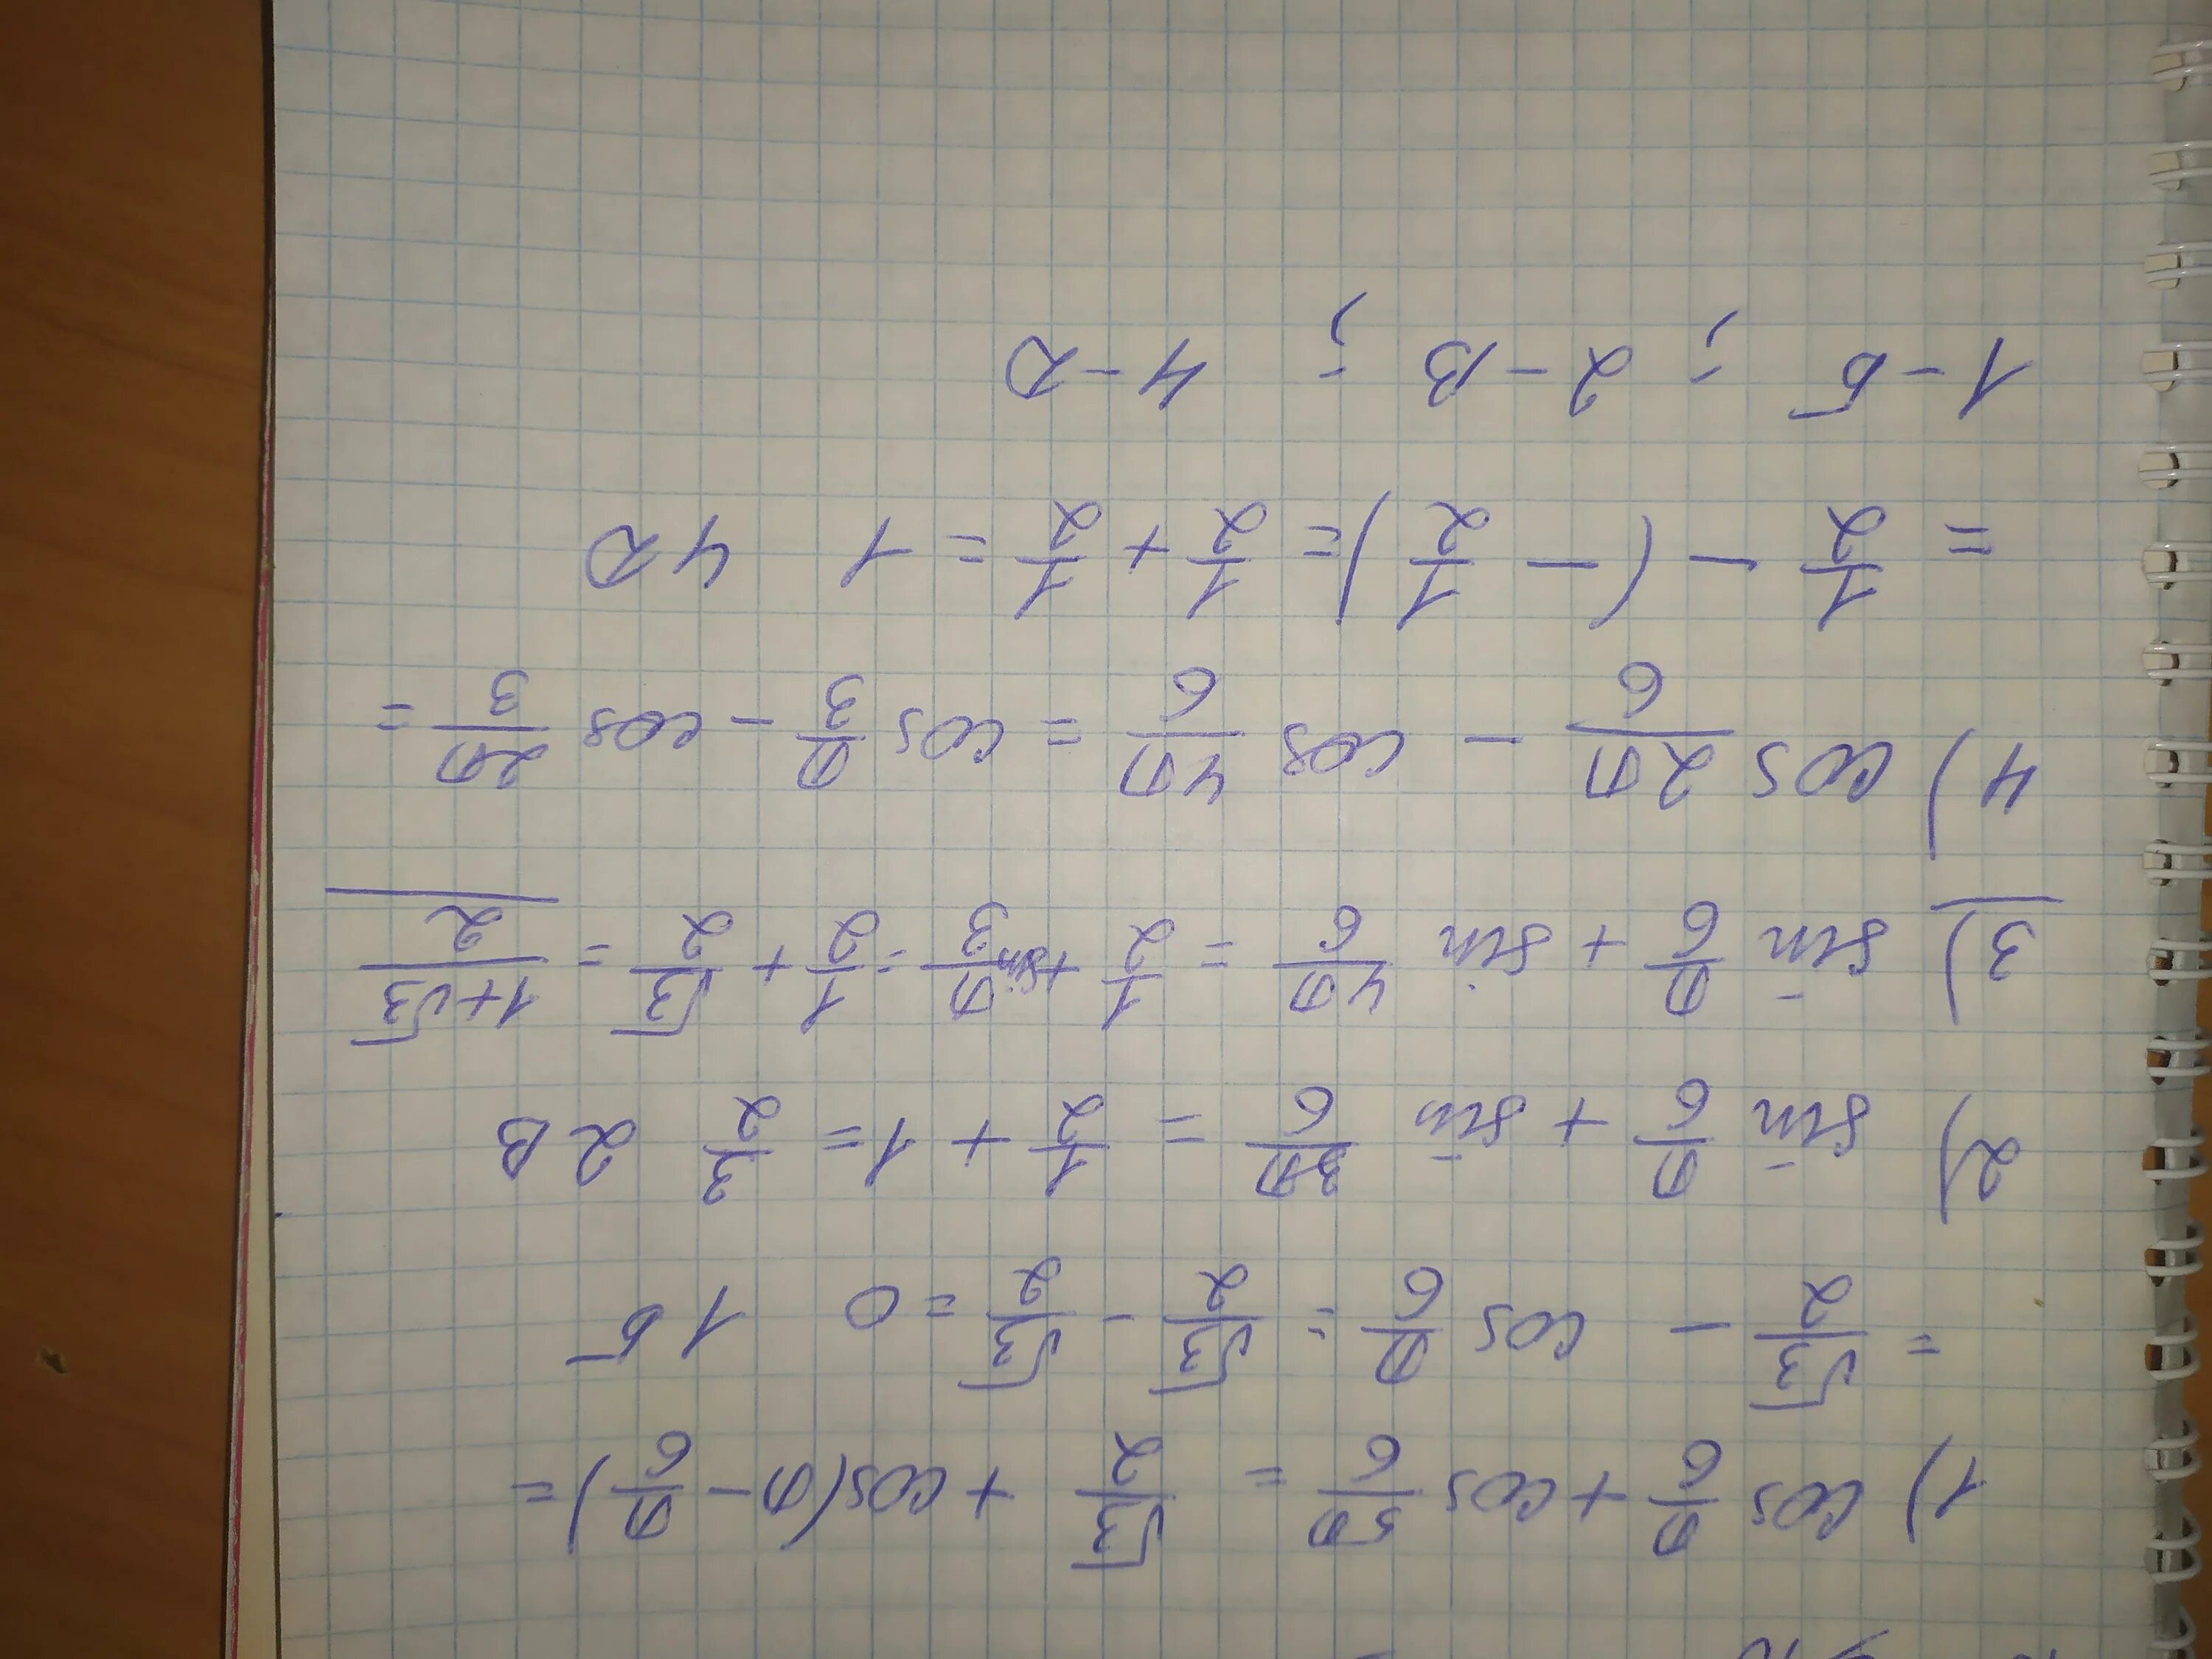 1) cos π/6 + cos 5π/6 = √3/2 + cos(π - π/6) =
= √3/2 - cos π/6 = √3/2 - √3/2 = 0 1Б
2) sin π/6 + sin 3π/6 = 1/2 + 1 = 3/2 2В
3) sin π/6 + sin 4π/6 = 1/2 + sin π/3 = 1/2 + √3/2 = 1+√3/2
4) cos 2π/6 - cos 4π/6 = cos π/3 - cos 2π/3 =
= 1/2 - (- 1/2) = 1/2 + 1/2 = 1 4D
1-Б ; 2-В ; 4-D